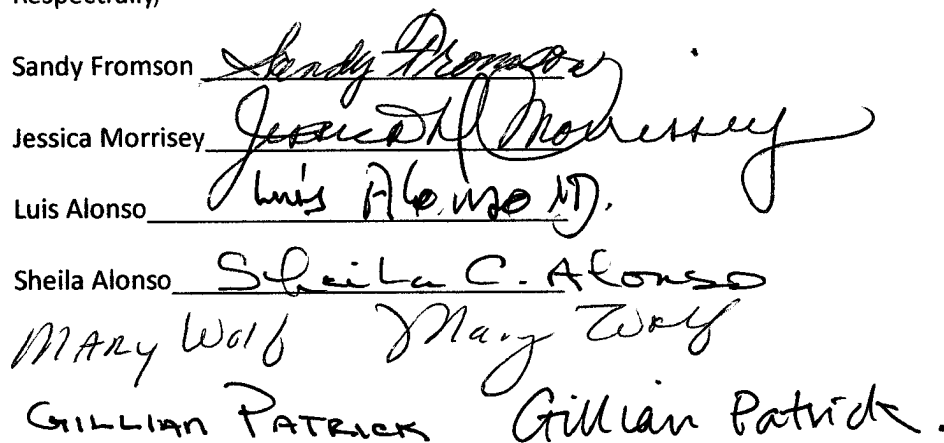 Respectfully,
Sandy Fromson Sandy Fromson
Jessica Morrisey Jessica M Morrissey
Luis Alonso Luis Alonso M.
Sheila Alonso Sheila C. Alonso
MARY Wolf Mary Wolf
GILLIAN PATRICK Gillian Patrick.